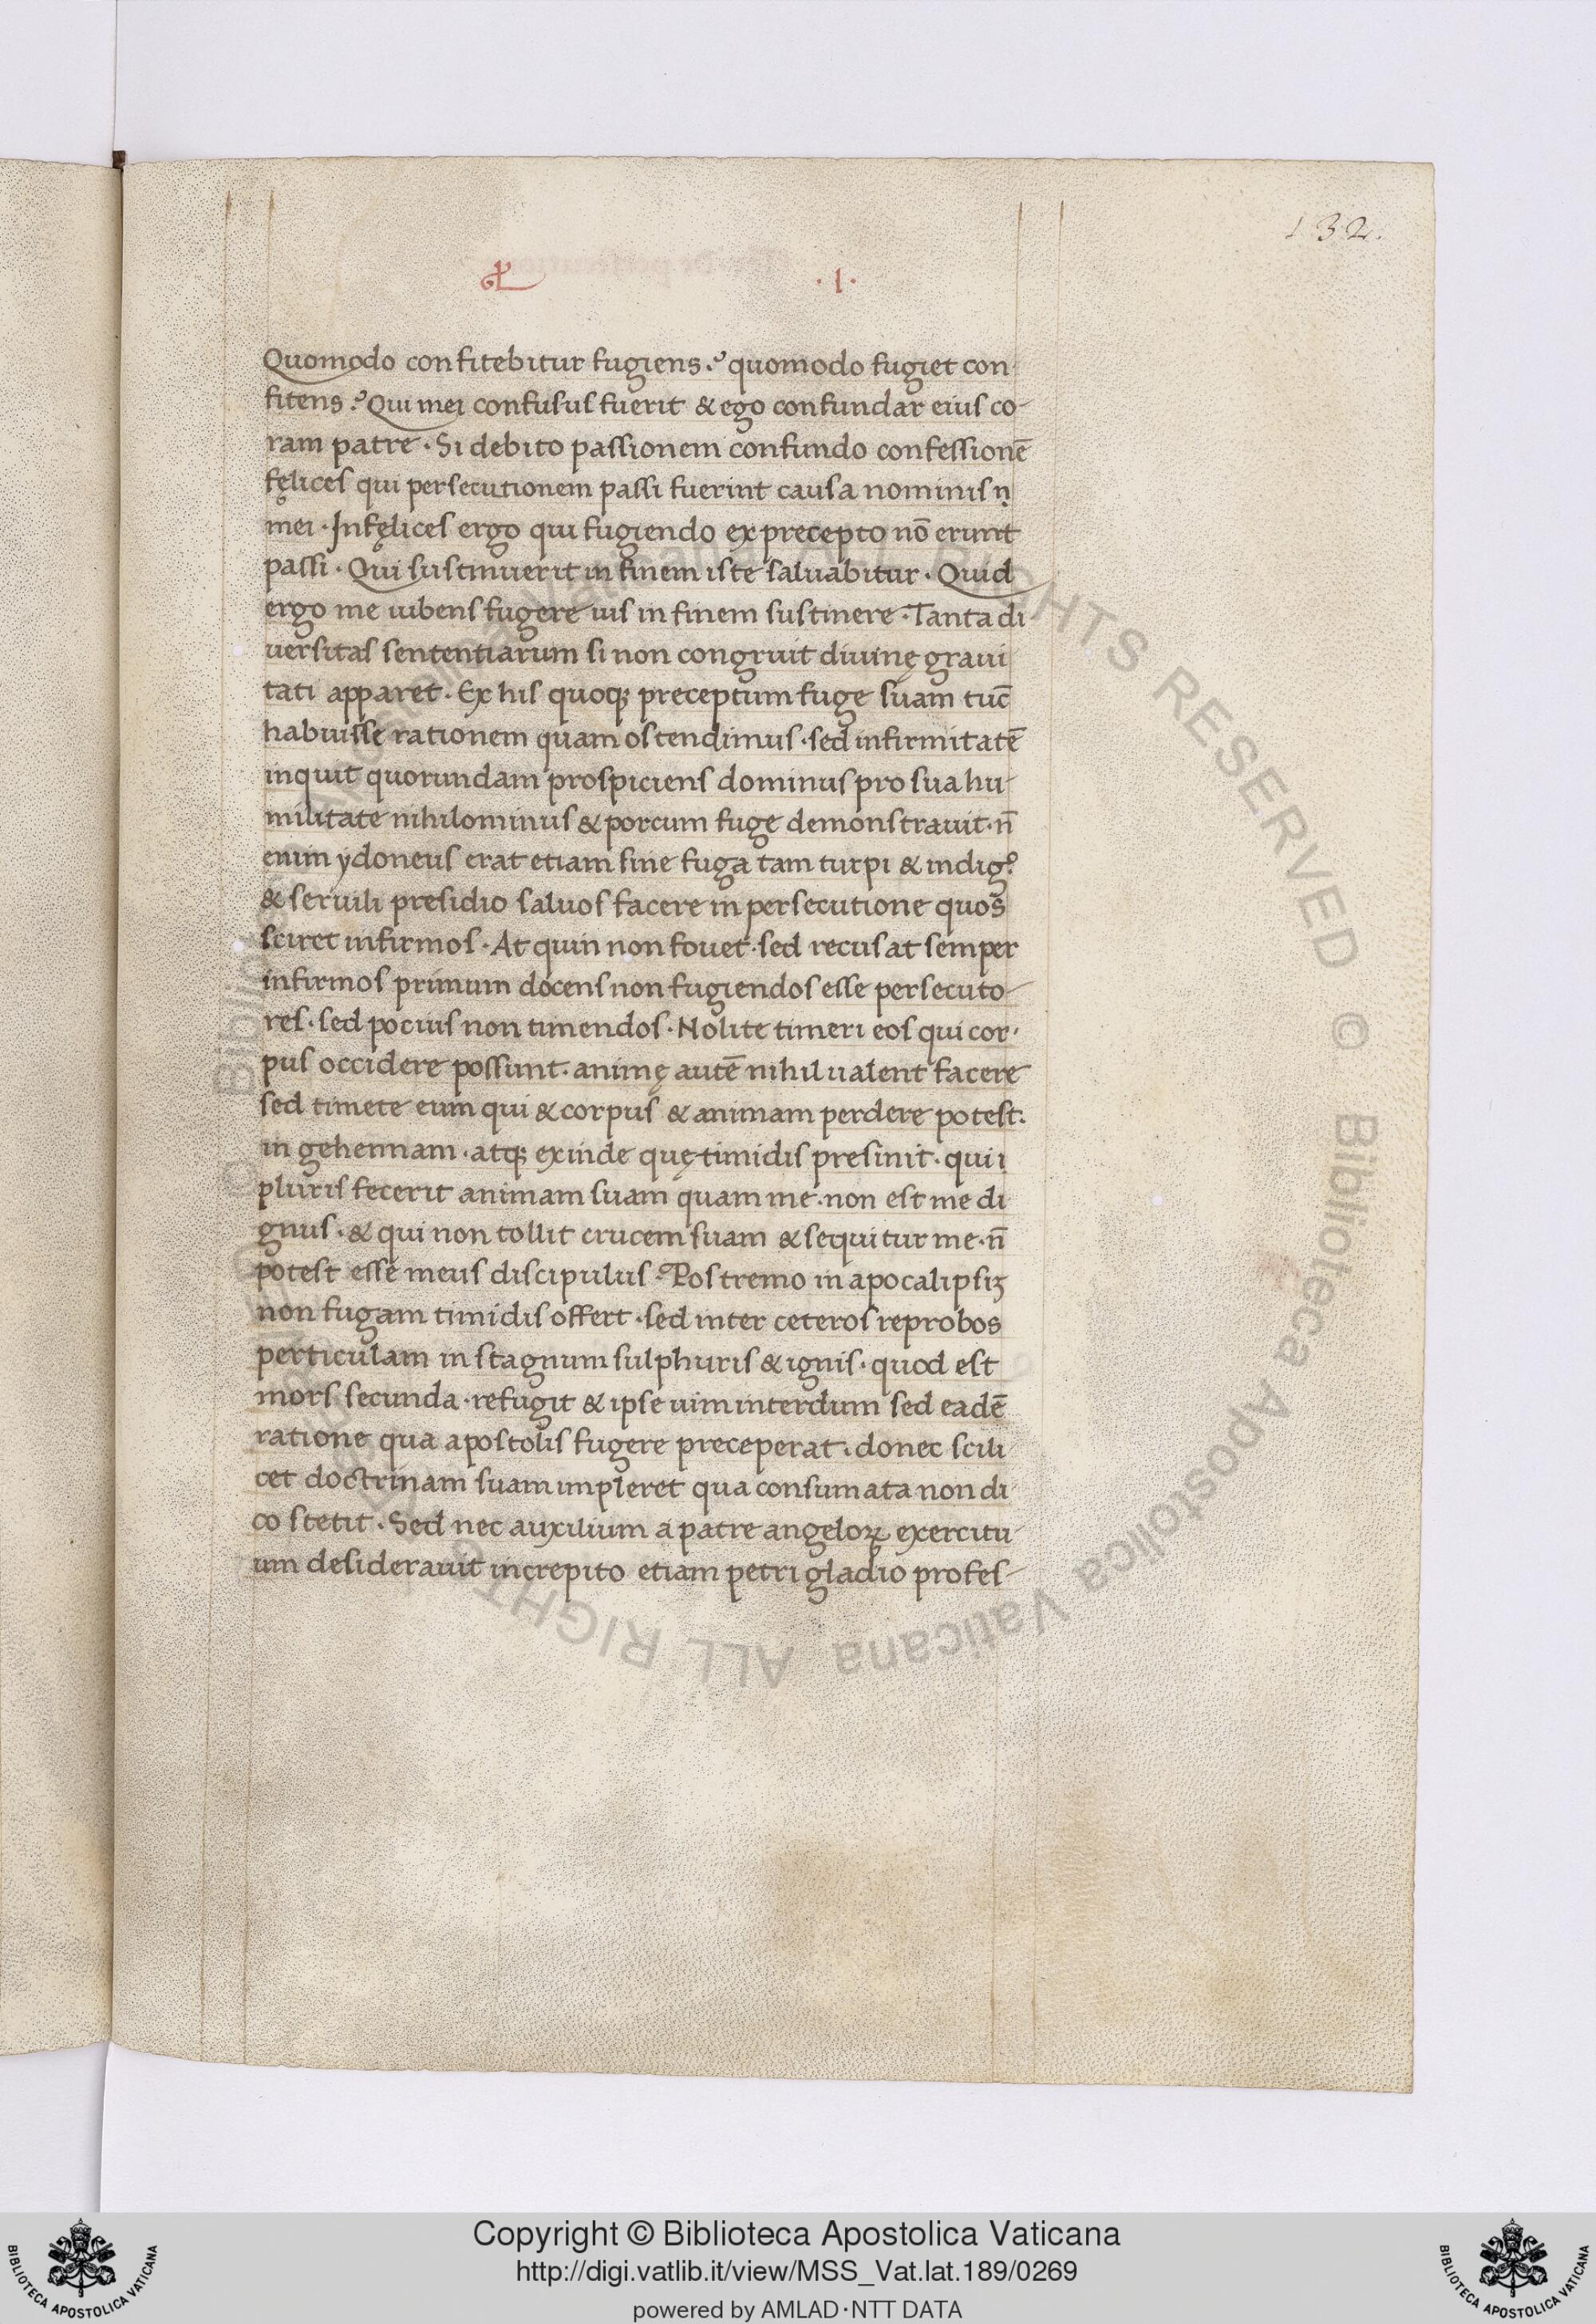 132.
.I.
Quomodo confitebitur fugiens? quomodo fugiet con-
fitens? Qui mei confusus fuerit & ego confundar eius co-
ram patre. Si debito passionem confundo confessionē
fęlices qui persecutionem passi fuerint causa nominis ṇ
mei. Infęlices ergo qui fugiendo ex precepto nō erunt
passi. Qui sustinuerit in finem iste saluabitur. Quid
ergo me iubens fugere uis in finem sustinere. Tanta di
uersitas sententiarum si non congruit diuinę graui
tati apparet. Ex his quoq; preceptum fuge suam tūc
habuisse rationem quam ostendimus. sed infirmitatē
inquit quorundam prospiciens dominus pro sua hu-
militate nihilominus & porcum fuge demonstrauit. n̄
enim ydoneus erat etiam sine fuga tam turpi & indigº
& seruili presidio saluos facere in persecutione quos
sciret infirmos. At quin non fouet. sed recusat semper
infirmos primum docens non fugiendos esse persecuto-
res. sed pocius non timendos. Nolite timeri eos qui cor-
pus occidere possunt. animę autē nihil ualent facere
sed timete eum qui & corpus & animam perdere potest.
in gehennam. atq; exinde quę timidis presinit. qui ı
pluris fecerit animam suam quam me. non est me di
gnus. & qui non tollit crucem suam & sequitur me. n̄
potest esse meus discipulus. Postremo in apocalipsiʒ
non fugam timidis offert. sed inter ceteros reprobos
perticulam in stagnum sulphuris & ignis. quod est
mors secunda. refugit & ipse uim interdum sed eadē
ratione qua apostolis fugere preceperat. donec scili
cet doctrinam suam impleret qua consumata non di
co stetit. Sed nec auxilium a patre angeloꝝ exercitu-
um desiderauit increpito etiam petri gladio profes-
© Biblioteca Apostolica Vaticana ALL RIGHTS RESERVED
Copyright © Biblioteca Apostolica Vaticana
http://digi.vatlib.it/view/MSS_Vat.lat.189/0269
powered by AMLAD·NTT DATA
BIBLIOTECA APOSTOLICA VATICANA
BIBLIOTECA APOSTOLICA VATICANA